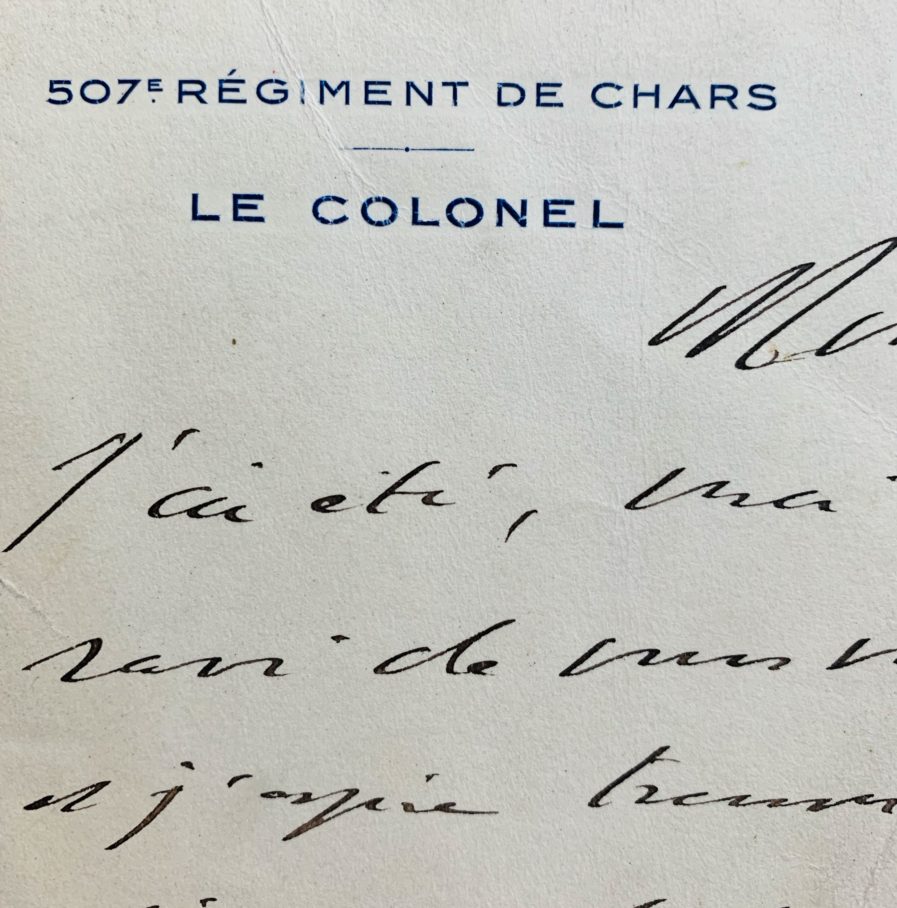 507E RÉGIMENT DE CHARS
LE COLONEL
J'ai été, vrai
ravi de vous
et j'espère